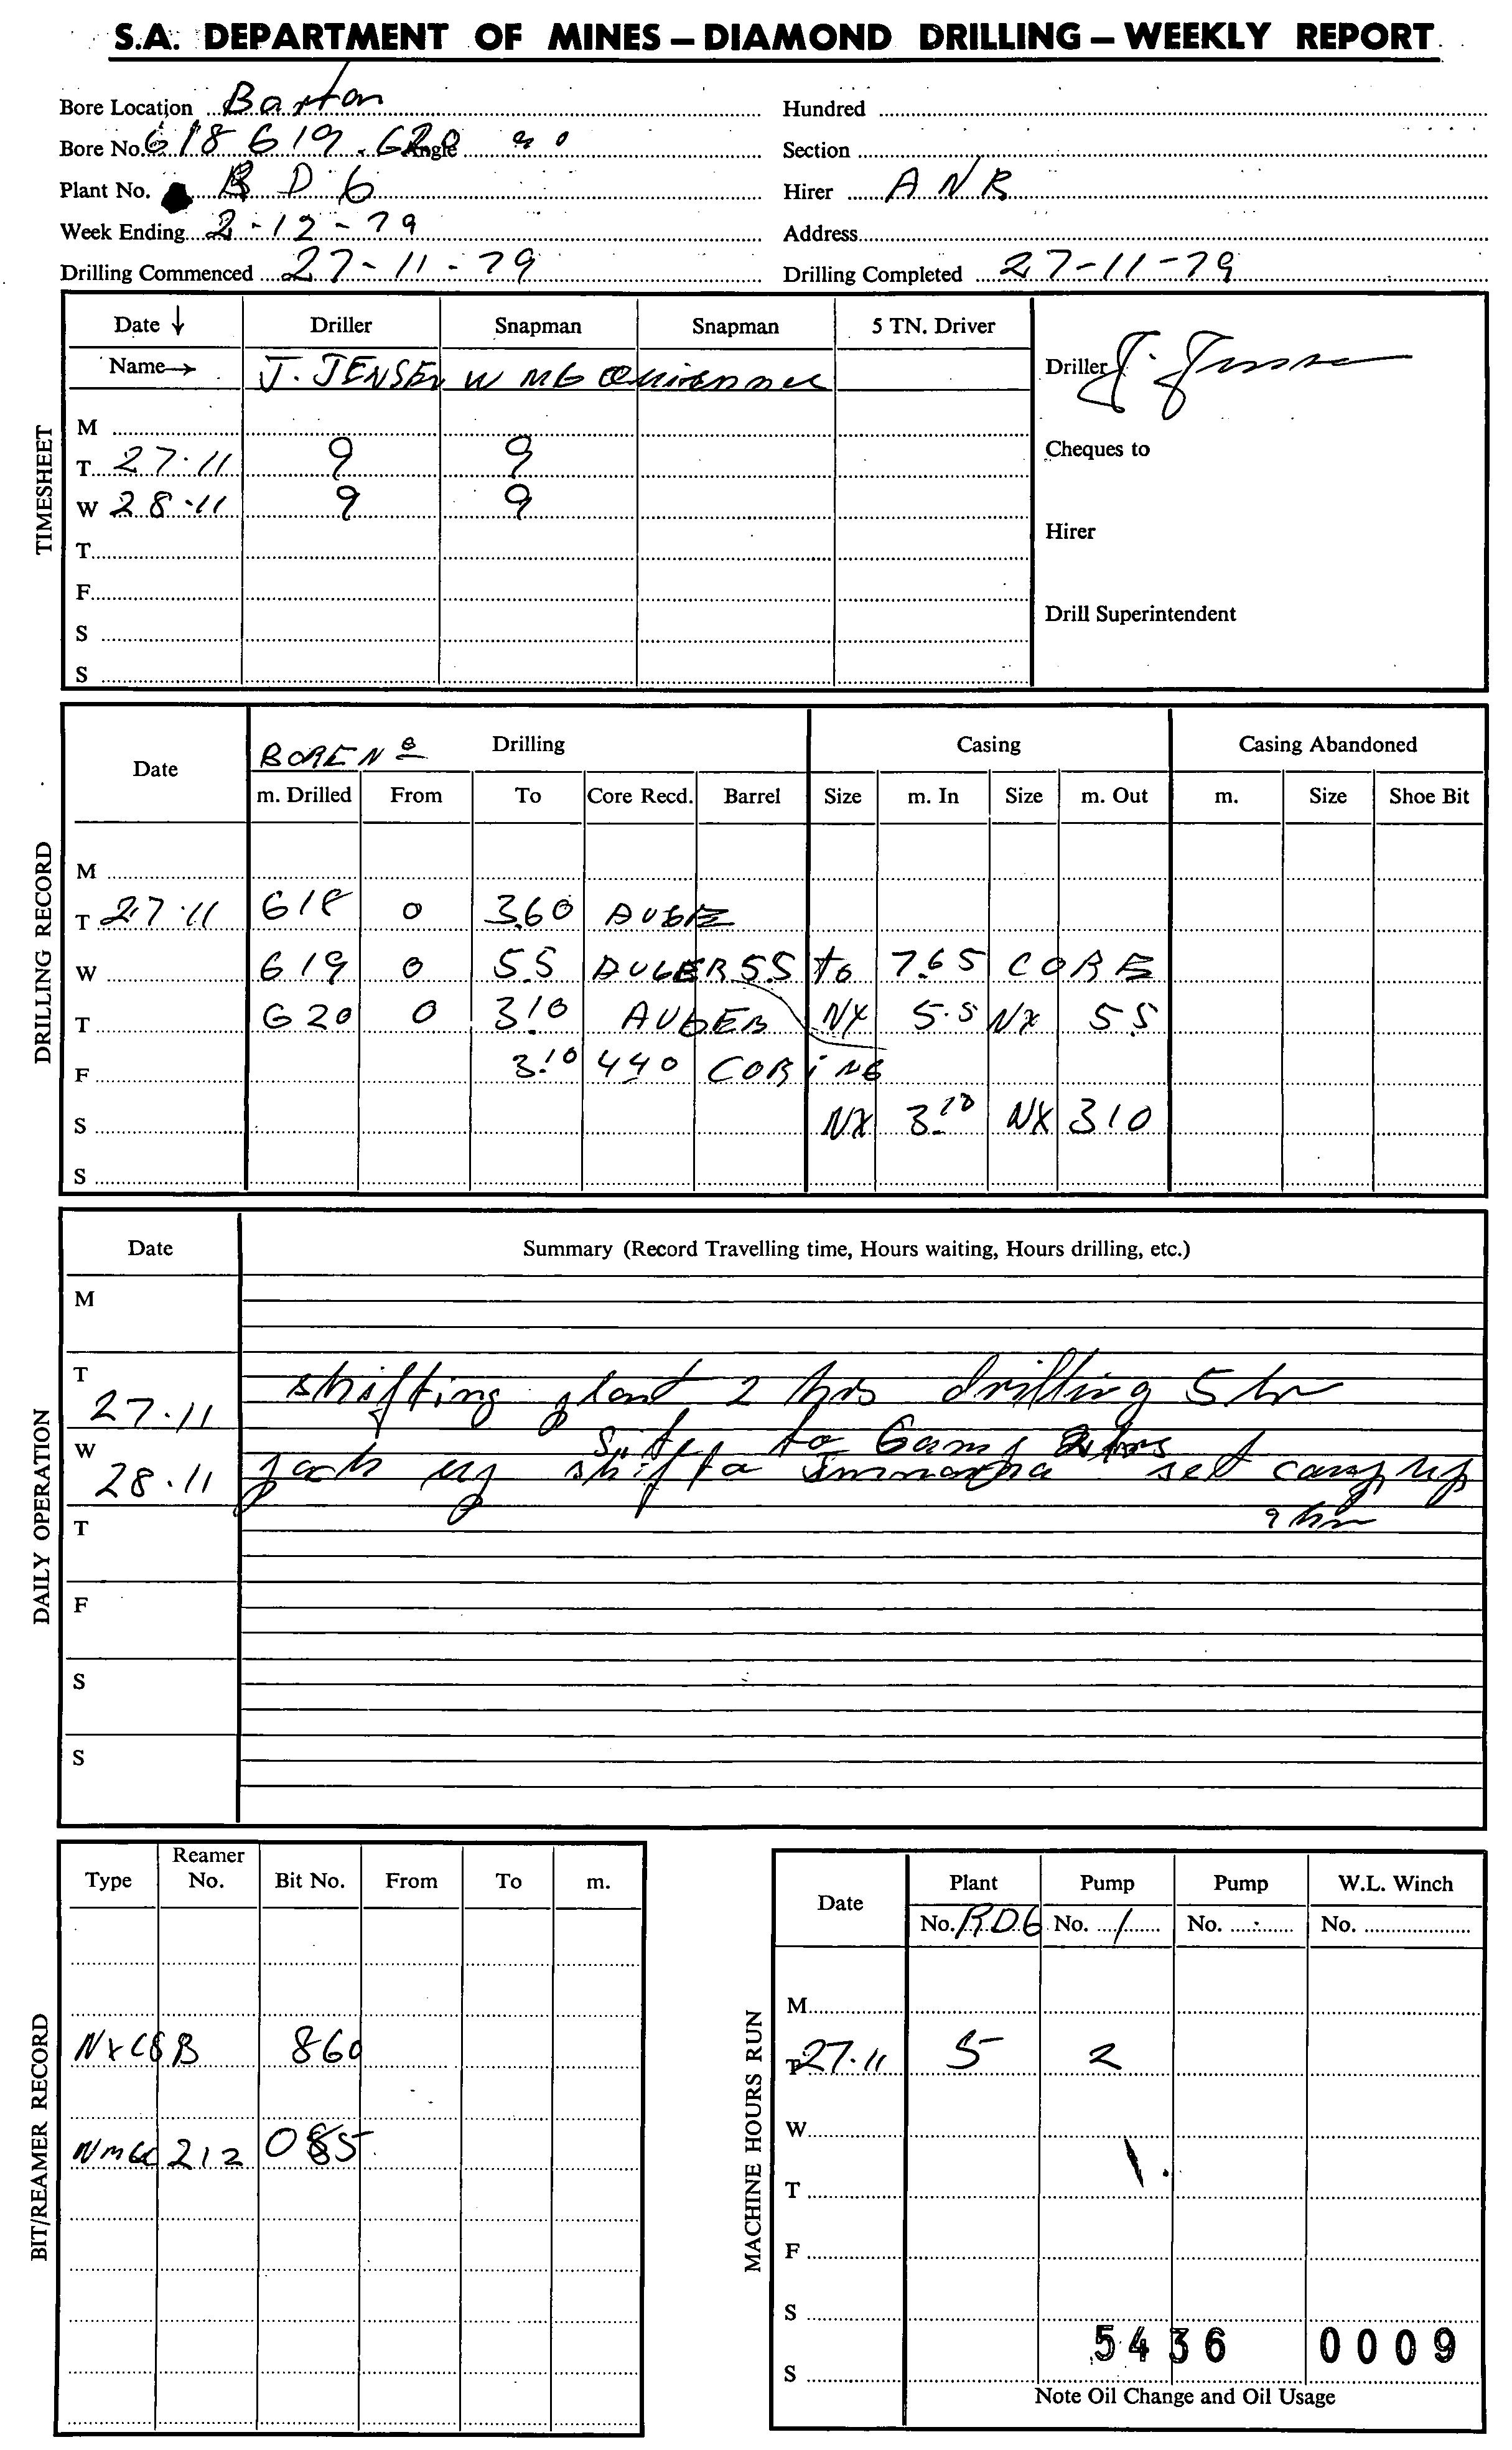 S.A. DEPARTMENT OF MINES – DIAMOND DRILLING – WEEKLY REPORT
Bore Location Barton Hundred
Bore No. 618 619.620 Angle 90 Section
Plant No. RD 6 Hirer ANR
Week Ending 2-12-79 Address
Drilling Commenced 27-11-79 Drilling Completed 27-11-79
TIMESHEET
Date ↓ Driller Snapman Snapman 5 TN. Driver
Name→ J. JENSEN W
Driller J. Jensen
M
T 27.11 9 9
Cheques to
W 28.11 9 9
Hirer
T
F
Drill Superintendent
S
S
DRILLING RECORD
Date BORE No Drilling Casing Casing Abandoned
m. Drilled From To Core Recd. Barrel Size m. In Size m. Out m. Size Shoe Bit
M
T 27.11 618 0 3.60 AUGER
W 619 0 5.5 AUGER 5.5 to 7.65 CORE
T 620 0 3.10 AUGER NX 5.5 NX 5.5
F 3.10 4.40 CORING
S NX 3.10 NX 310
S
DAILY OPERATION
Date Summary (Record Travelling time, Hours waiting, Hours drilling, etc.)
M
T 27.11 shifting plant 2 hrs drilling 5 hr
to Camp 2 hrs
W 28.11 pack up shift to set camp up
9 hr
T
F
S
S
BIT/REAMER RECORD
Type Reamer No. Bit No. From To m.
NXCSB 860
212 085
MACHINE HOURS RUN
Date Plant Pump Pump W.L. Winch
No. RD6 No. 1 No. No.
M
T 27.11 5 2
W
T
F
S
5436 0009
S
Note Oil Change and Oil Usage